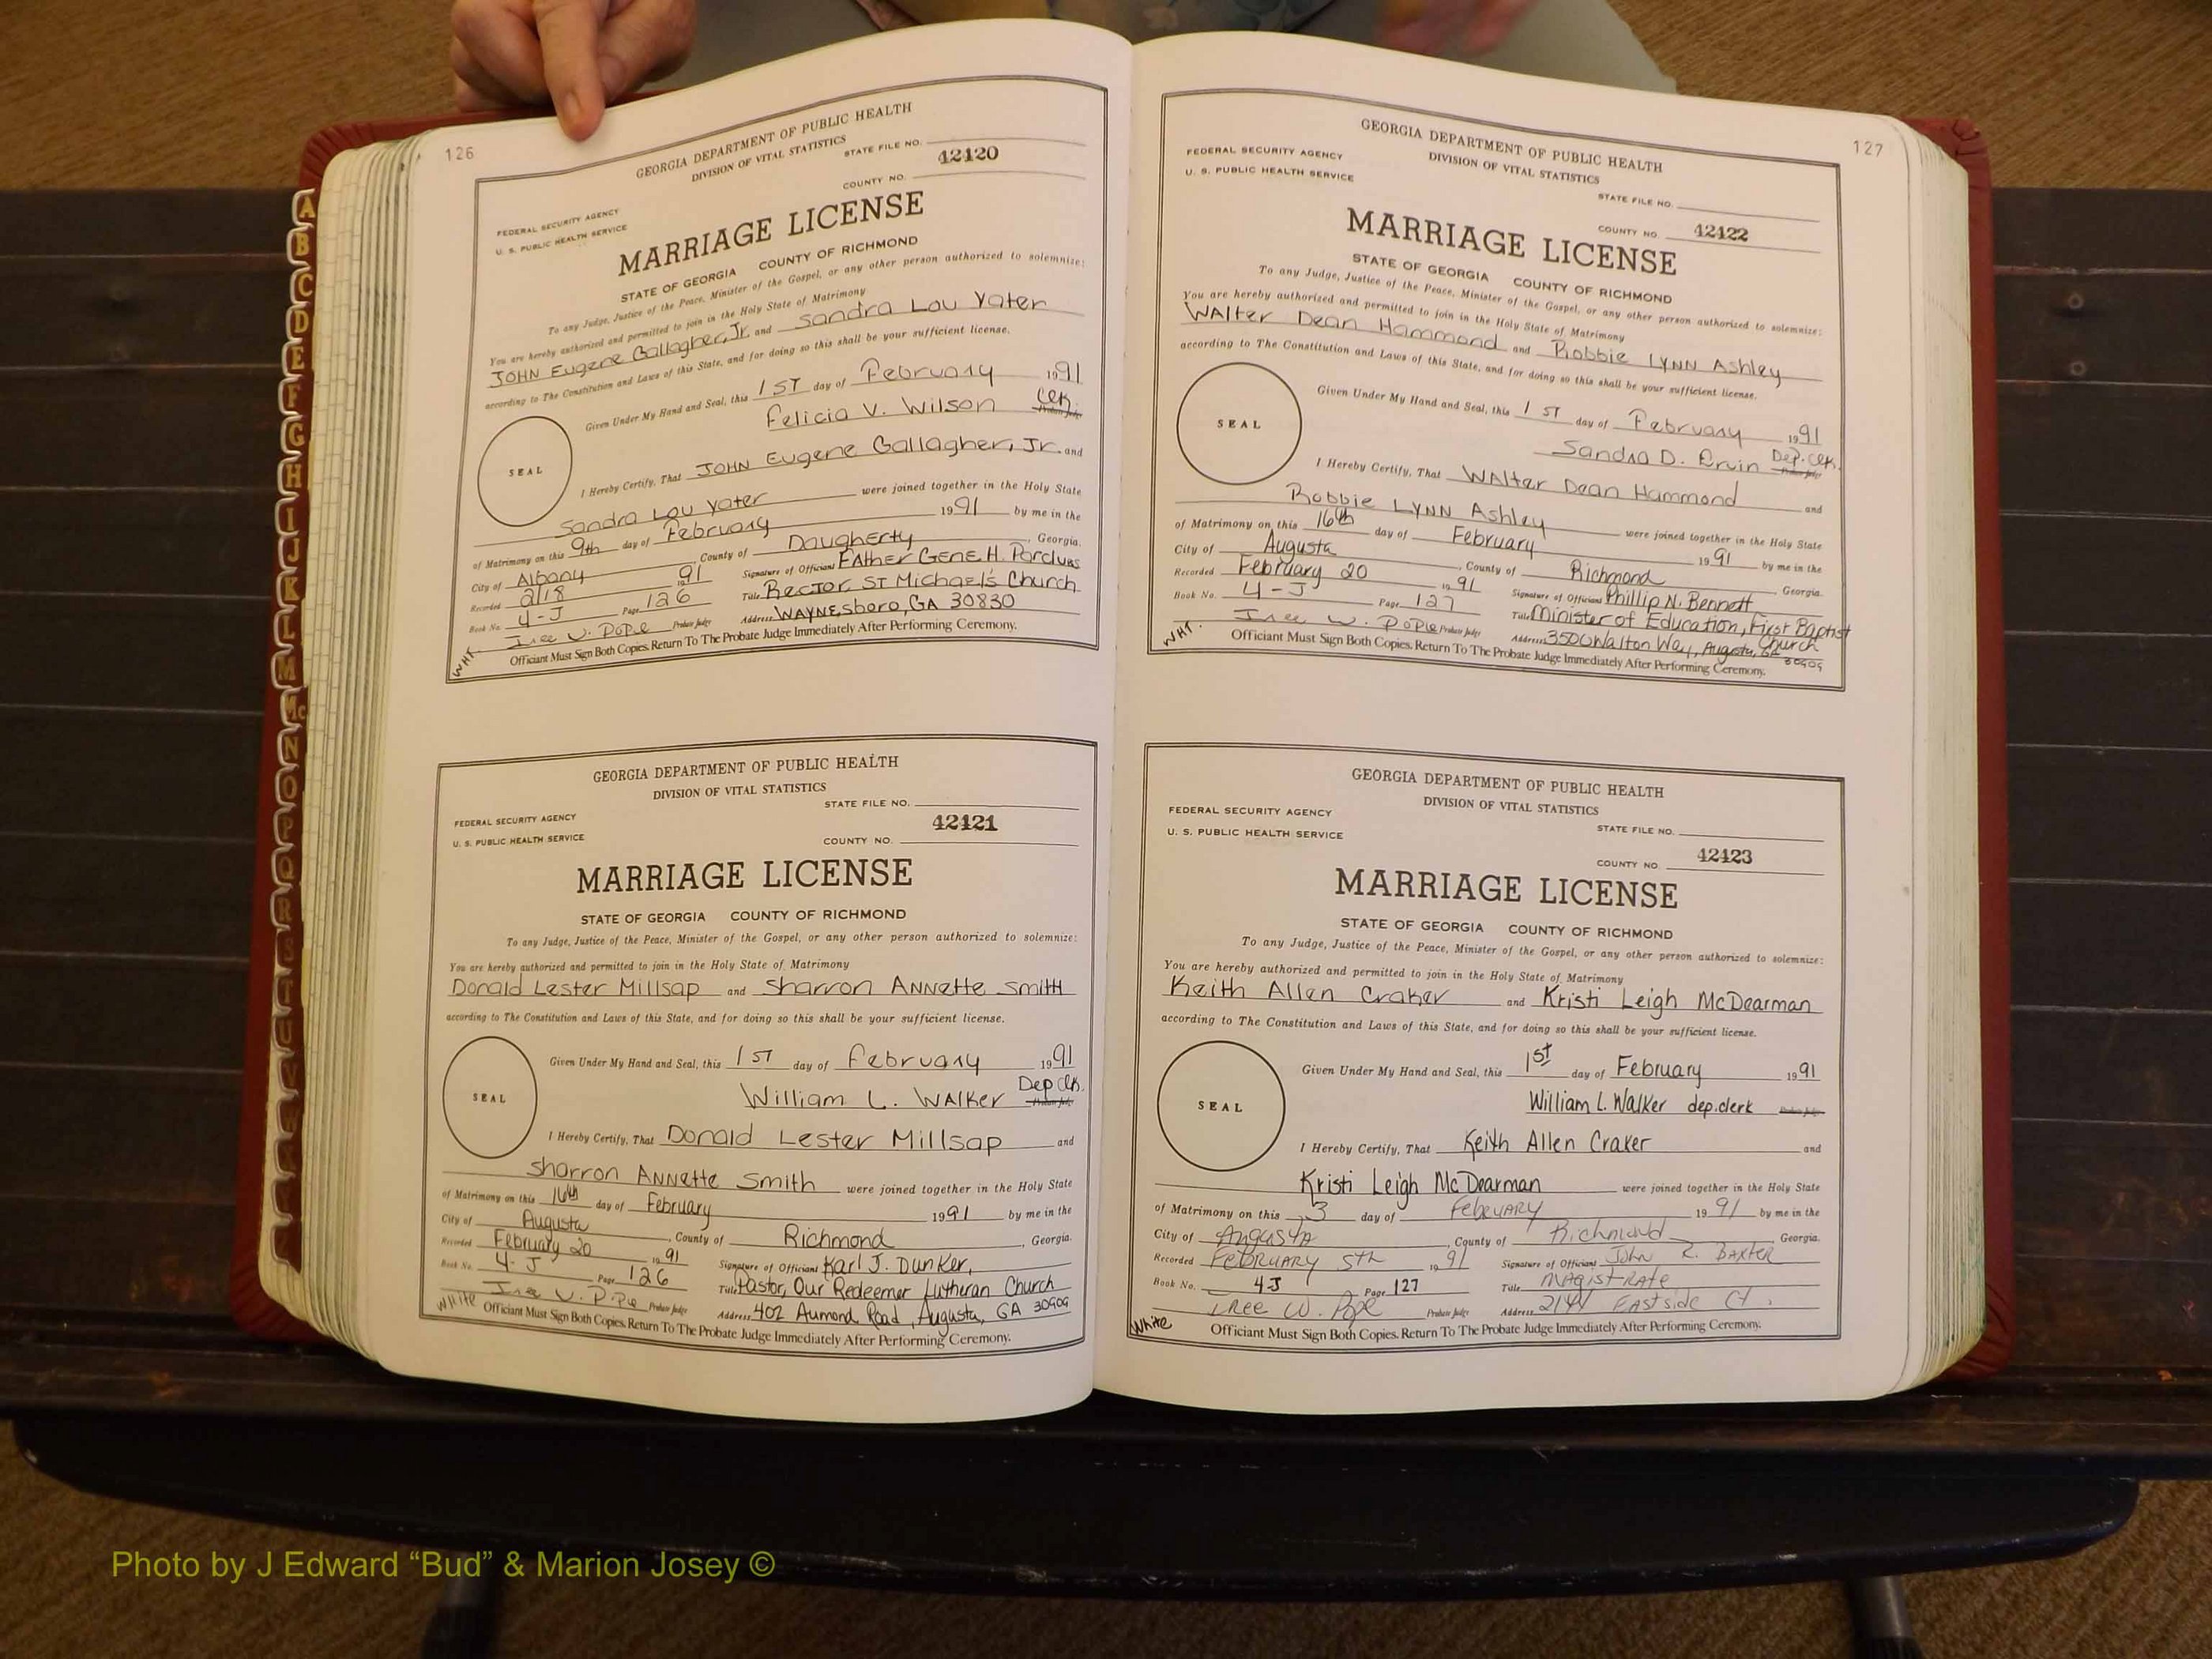 126
GEORGIA DEPARTMENT OF PUBLIC HEALTH
DIVISION OF VITAL STATISTICS
STATE FILE NO.
42120
COUNTY NO.
FEDERAL SECURITY AGENCY
U. S. PUBLIC HEALTH SERVICE
MARRIAGE LICENSE
STATE OF GEORGIA COUNTY OF RICHMOND
To any Judge, Justice of the Peace, Minister of the Gospel, or any other person authorized to solemnize:
You are hereby authorized and permitted to join in the Holy State of Matrimony
JOHN Eugene Gallagher, Jr. and Sandra Lou Yater
according to The Constitution and Laws of this State, and for doing so this shall be your sufficient license.
Given Under My Hand and Seal, this 1ST day of February 1991
Felicia V. Wilson Clk. Probate Judge
SEAL
I Hereby Certify, That JOHN Eugene Gallagher, Jr. and
Sandra Lou Yater were joined together in the Holy State
of Matrimony on this 9th day of February 1991 by me in the
City of Albany County of Daugherty, Georgia.
Recorded 2/18 1991 Signature of Officiant Father Gene H.
Book No. 4-J Page 126 Title Rector, ST Michael's Church
W. Pope Probate Judge Address Waynesboro, GA 30830
WHT.
Officiant Must Sign Both Copies. Return To The Probate Judge Immediately After Performing Ceremony.
GEORGIA DEPARTMENT OF PUBLIC HEALTH
DIVISION OF VITAL STATISTICS
STATE FILE NO.
FEDERAL SECURITY AGENCY
42121
U. S. PUBLIC HEALTH SERVICE
COUNTY NO.
MARRIAGE LICENSE
STATE OF GEORGIA COUNTY OF RICHMOND
To any Judge, Justice of the Peace, Minister of the Gospel, or any other person authorized to solemnize:
You are hereby authorized and permitted to join in the Holy State of Matrimony
Donald Lester Millsap and Sharron Annette Smith
according to The Constitution and Laws of this State, and for doing so this shall be your sufficient license.
Given Under My Hand and Seal, this 1ST day of February 1991
William L. Walker Dep Clk. Probate Judge
SEAL
I Hereby Certify, That Donald Lester Millsap and
Sharron Annette Smith were joined together in the Holy State
of Matrimony on this 16th day of February 1991 by me in the
City of Augusta, County of Richmond, Georgia.
Recorded February 20 1991 Signature of Officiant Karl J. Dunker,
Book No. 4-J Page 126 Title Pastor, Our Redeemer Lutheran Church
W. Pope Probate Judge Address 402 Aumond Road, Augusta, GA 30909
White
Officiant Must Sign Both Copies. Return To The Probate Judge Immediately After Performing Ceremony.
127
GEORGIA DEPARTMENT OF PUBLIC HEALTH
FEDERAL SECURITY AGENCY
DIVISION OF VITAL STATISTICS
U. S. PUBLIC HEALTH SERVICE
STATE FILE NO.
COUNTY NO. 42122
MARRIAGE LICENSE
STATE OF GEORGIA COUNTY OF RICHMOND
To any Judge, Justice of the Peace, Minister of the Gospel, or any other person authorized to solemnize:
You are hereby authorized and permitted to join in the Holy State of Matrimony
Walter Dean Hammond and Robbie Lynn Ashley
according to The Constitution and Laws of this State, and for doing so this shall be your sufficient license.
Given Under My Hand and Seal, this 1ST day of February 1991
Sandra D. Ervin Dep. Clk. Probate Judge
SEAL
I Hereby Certify, That Walter Dean Hammond and
Robbie Lynn Ashley were joined together in the Holy State
of Matrimony on this 16th day of February 1991 by me in the
City of Augusta, County of Richmond Georgia.
Recorded February 20 1991 Signature of Officiant Phillip N. Bennett
Book No. 4-J Page 127 Title Minister of Education, First Baptist Church
W. Pope Probate Judge Address 3500 Walton Way, Augusta, GA 30909
WHT.
Officiant Must Sign Both Copies. Return To The Probate Judge Immediately After Performing Ceremony.
GEORGIA DEPARTMENT OF PUBLIC HEALTH
DIVISION OF VITAL STATISTICS
FEDERAL SECURITY AGENCY
STATE FILE NO.
U. S. PUBLIC HEALTH SERVICE
COUNTY NO. 42123
MARRIAGE LICENSE
STATE OF GEORGIA COUNTY OF RICHMOND
To any Judge, Justice of the Peace, Minister of the Gospel, or any other person authorized to solemnize:
You are hereby authorized and permitted to join in the Holy State of Matrimony
Keith Allen Craker and Kristi Leigh McDearman
according to The Constitution and Laws of this State, and for doing so this shall be your sufficient license.
Given Under My Hand and Seal, this 1st day of February 1991
William L. Walker dep.clerk Probate Judge
SEAL
I Hereby Certify, That Keith Allen Craker and
Kristi Leigh McDearman were joined together in the Holy State
of Matrimony on this 3 day of February 1991 by me in the
City of Augusta, County of Richmond Georgia.
Recorded February 5th 1991 Signature of Officiant John R. Baxter
Book No. 4-J Page 127 Title Magistrate
W. Pope Probate Judge Address Eastside Ct.
White
Officiant Must Sign Both Copies. Return To The Probate Judge Immediately After Performing Ceremony.
A
B
C
D
E
F
G
H
I
J
K
L
M
Mc
N
O
P
Q
R
S
T
U
Photo by J Edward “Bud” & Marion Josey ©